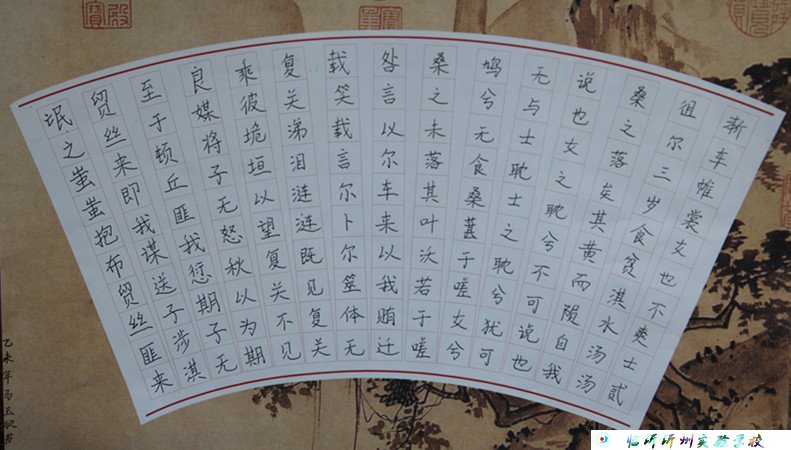 氓之蚩蚩抱布贸丝匪来
贸丝来即我谋送子涉淇
至于顿丘匪我愆期子无
良媒将子无怒秋以为期
乘彼垝垣以望复关不见
复关涕泪涟涟既见复关
载笑载言尔卜尔筮体无
咎言以尔车来以我贿迁
桑之未落其叶沃若于嗟
鸠兮无食桑葚于嗟女兮
无与士耽士之耽兮犹可
说也女之耽兮不可说也
桑之落矣其黄而陨自我
徂尔三岁食贫淇水汤汤
渐车帷裳女也不爽士贰
乙未年
临沂沂州实验学校